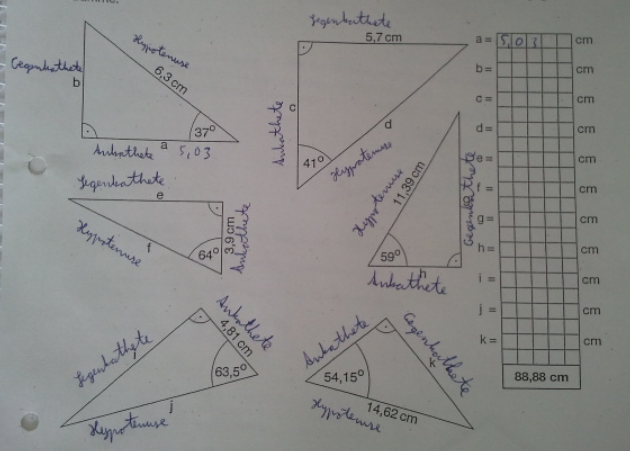 Gegenkathete
5,7 cm
a = 5,03 cm
Hypotenuse
6,3 cm
Gegenkathete
b
37°
a
Ankathete 5,03
c
Ankathete
d
41°
Hypotenuse
b = cm
c = cm
d = cm
e = cm
f = cm
g = cm
h = cm
i = cm
j = cm
k = cm
88,88 cm
Gegenkathete
e
f
Hypotenuse
64°
3,9 cm
Ankathete
Hypotenuse
11,39 cm
g
Gegenkathete
59°
h
Ankathete
Ankathete
4,81 cm
Gegenkathete
63,5°
j
Hypotenuse
Ankathete
Gegenkathete
k
54,15°
14,62 cm
Hypotenuse